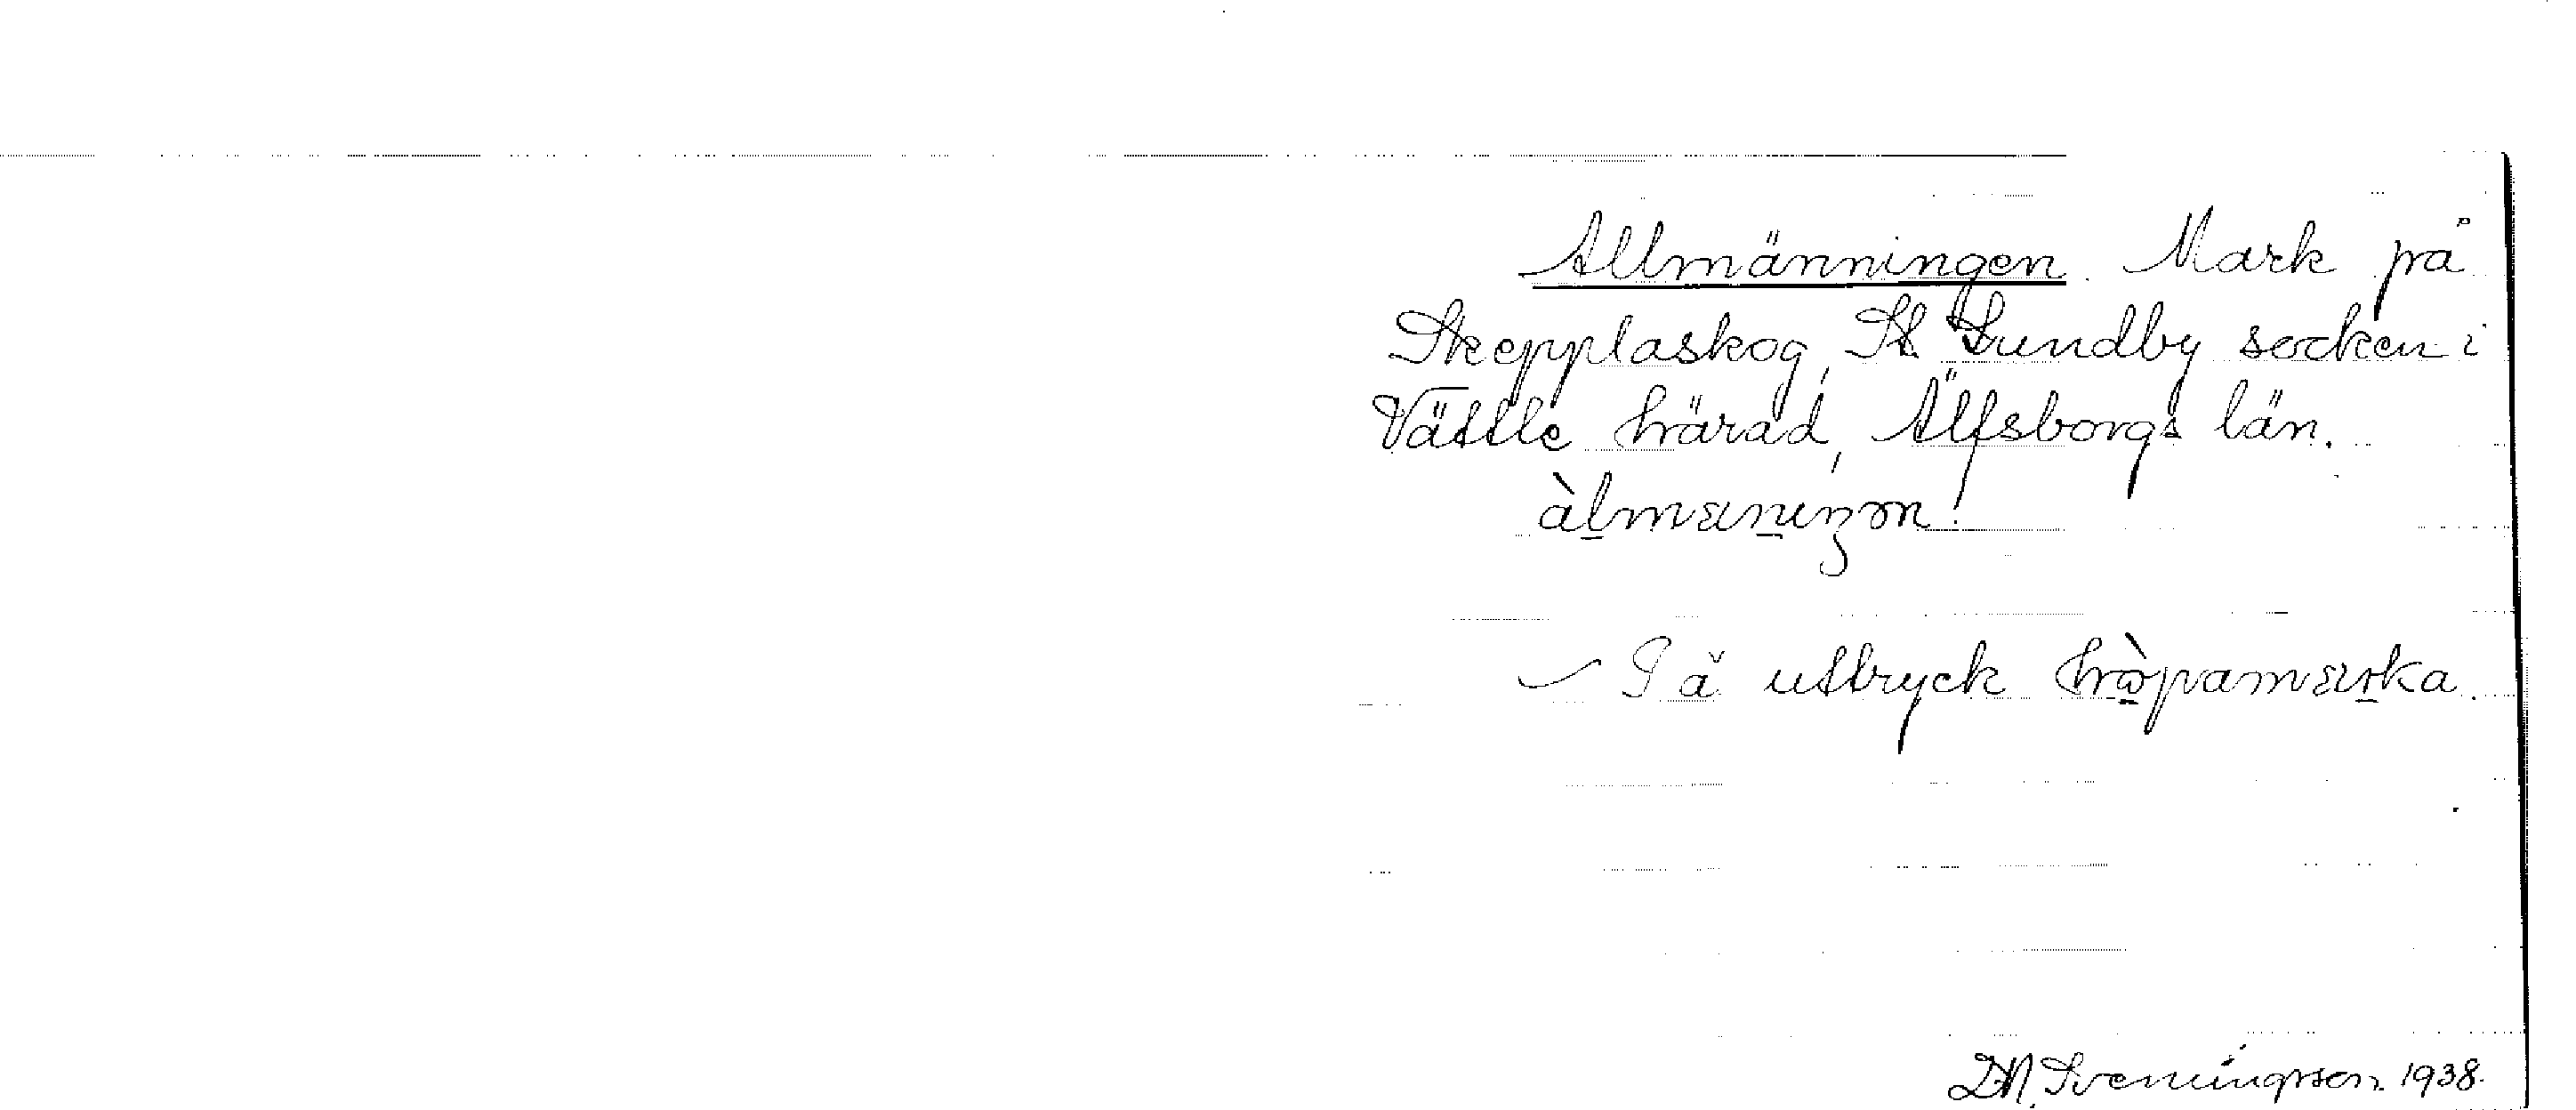 Allmänningen. Mark på
Skepplaskog, St. Lundby socken i
Vättle härad, Älfsborgs län.
àlmänıŋən.
På uttryck hòpamärka.
D.N. Sveningsson 1938.